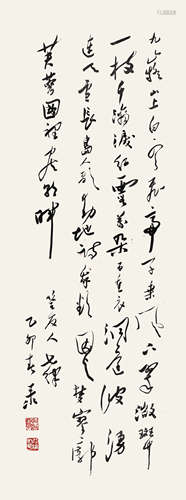 九嶷山上白云飞帝子乘风下翠微斑竹
一枝千滴泪红霞万朵百重衣洞庭波涌
连天雪长岛人歌动地诗我欲因之梦寥廓
芙蓉國裡尽朝晖
答友人 七律
乙卯春